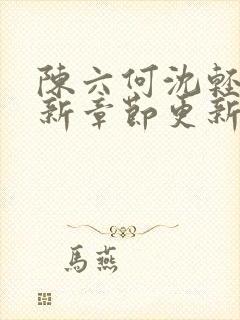 陳六何沈輕
新章節更新
馬燕